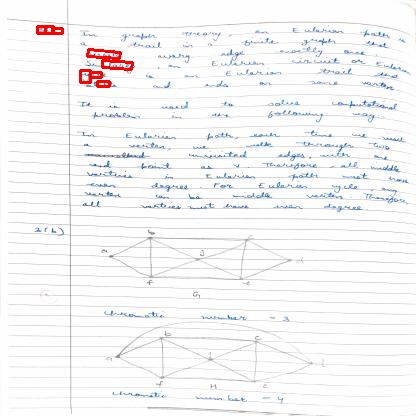 In graph theory, an Eulerian path is
a trail in a finite graph that
every edge exactly once.
an Eulerian circuit or Euler
is an Eulerian trail that
and ends on same vertex
It is used to solve computational
problem in the following way.
In Eulerian path, each time we visit
a vertex, we walk through two
unvisited edges, with one
end point as v. Therefore, all middle
vertices in Eulerian path must have
even degree. For Eulerian cycle, any
vertex can be middle vertex. Therefore
all vertices must have even degree.
2(b)
b c
a g d
f e
G
Chromatic number = 3
b c
a d
f e
H
Chromatic number = 4